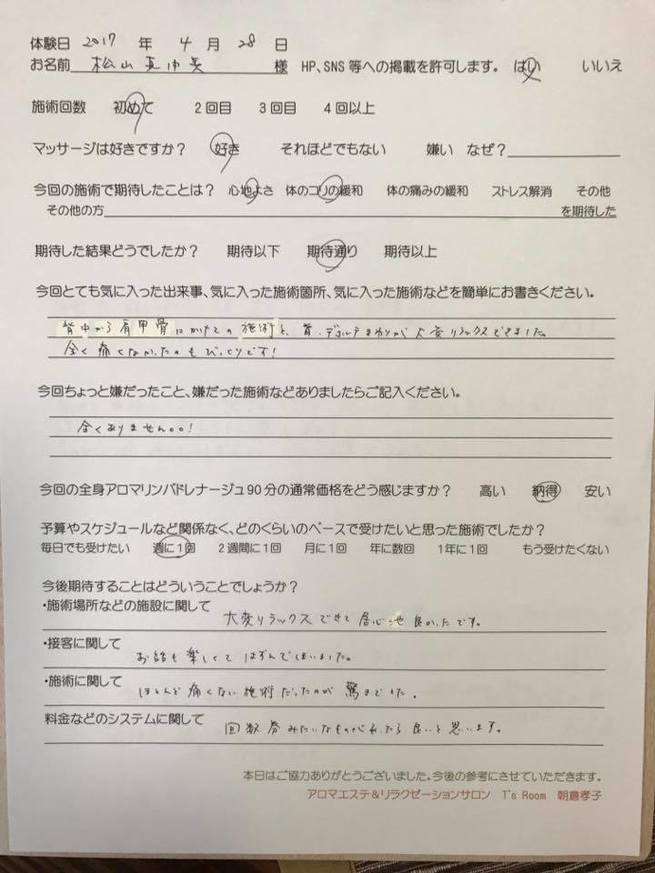 体験日 2017 年 4 月 28 日
お名前 松山真由美 様 HP、SNS 等への掲載を許可します。 はい いいえ
施術回数 初めて 2回目 3回目 4回以上
マッサージは好きですか？ 好き それほどでもない 嫌い なぜ？
今回の施術で期待したことは？ 心地よさ 体のコリの緩和 体の痛みの緩和 ストレス解消 その他
その他の方 を期待した
期待した結果どうでしたか？ 期待以下 期待通り 期待以上
今回とても気に入った出来事、気に入った施術箇所、気に入った施術などを簡単にお書きください。
背中から肩甲骨にかけての施術と、首・デコルテまわりが大変リラックスできました。
全く痛くなかったのもびっくりです！
今回ちょっと嫌だったこと、嫌だった施術などありましたらご記入ください。
全くありません。。！
今回の全身アロマリンパドレナージュ90分の通常価格をどう感じますか？ 高い 納得 安い
予算やスケジュールなど関係なく、どのくらいのペースで受けたいと思った施術でしたか？
毎日でも受けたい 週に1回 2週間に1回 月に1回 年に数回 1年に1回 もう受けたくない
今後期待することはどういうことでしょうか？
・施術場所などの施設に関して 大変リラックスできて居心地良かったです。
・接客に関して お話も楽しくてはずんでしまいました。
・施術に関して ほとんど痛くない施術だったのが驚きでした。
料金などのシステムに関して 回数券みたいなものがあったら良いと思います。
本日はご協力ありがとうございました。今後の参考にさせていただきます。
アロマエステ＆リラクゼーションサロン T's Room 朝倉孝子